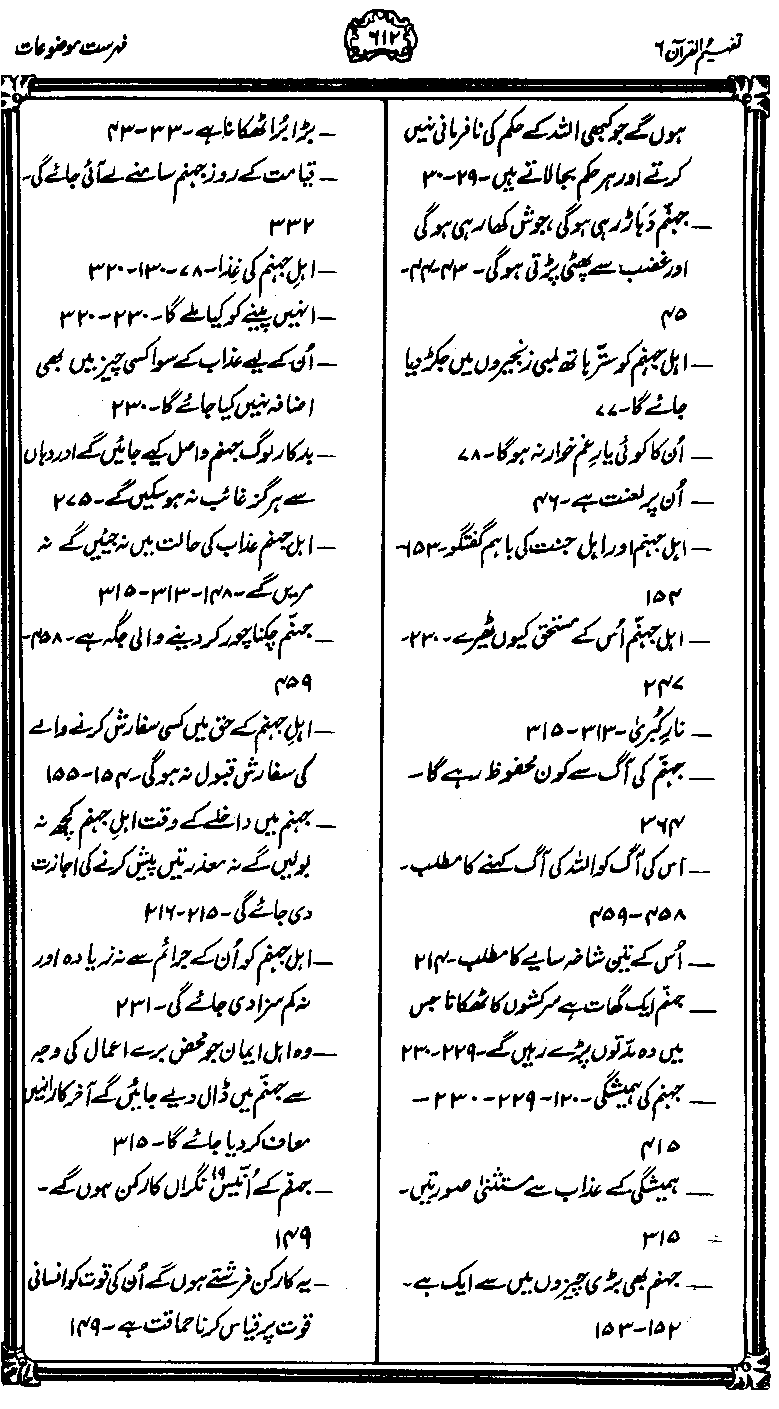 تفہیم القرآن ۶
۶۱۲
فہرست موضوعات
ہوں گے جو کبھی اللہ کے حکم کی نافرمانی نہیں
کرتے اور ہر حکم بجا لاتے ہیں ۔ ۲۹۔۳۰
— جہنم دَہاڑ رہی ہو گی، جوش کھا رہی ہو گی
اور غضب سے پھٹی پڑتی ہو گی ۔ ۴۳۔۴۴۔
۴۵
— اہلِ جہنم کو ستّر ہاتھ لمبی زنجیروں میں جکڑ دیا
جائے گا ۔ ۷۷
— اُن کا کوئی یارِ غم خوار نہ ہو گا ۔ ۷۸
— اُن پر لعنت ہے ۔ ۴۶
— اہلِ جہنم اور اہل جنت کی باہم گفتگو ۔ ۱۵۳۔
۱۵۴
— اہلِ جہنّم اُس کے مستحق کیوں ٹھیرے ۔ ۲۳۰۔
۲۴۷
— نارِ کُبریٰ ۔ ۳۱۳۔۳۱۵
— جہنّم کی آگ سے کون محفوظ رہے گا ۔
۳۶۴
— اس کی آگ کو اللہ کی آگ کہنے کا مطلب ۔
۴۵۸۔۴۵۹
— اُس کے تین شاخہ سایے کا مطلب ۔ ۲۱۴
— جہنّم ایک گھات ہے سرکشوں کا ٹھکانا جس
میں وہ مدّتوں پڑے رہیں گے ۔ ۲۲۹۔۲۳۰
— جہنم کی ہمیشگی ۔ ۱۲۰۔۲۲۹۔۲۳۰۔
۴۱۵
— ہمیشگی کے عذاب سے مستثنیٰ صورتیں ۔
۳۱۵
— جہنم بھی بڑی چیزوں میں سے ایک ہے ۔
۱۵۲۔۱۵۳
— بڑا بُرا ٹھکانا ہے ۔ ۳۳۔۴۳
— قیامت کے روز جہنم سامنے لے آئی جائے گی ۔
۳۳۲
— اہلِ جہنم کی غِذا ۔ ۷۸۔۱۳۰۔۳۲۰
— انہیں پینے کو کیا ملے گا ۔ ۲۳۰۔۳۲۰
— اُن کے لیے عذاب کے سوا کسی چیز میں بھی
اضافہ نہیں کیا جائے گا ۔ ۲۳۰
— بدکار لوگ جہنم داصل کیے جائیں گے اور وہاں
سے ہرگز غائب نہ ہو سکیں گے ۔ ۲۷۵
— اہلِ جہنم عذاب کی حالت میں نہ جئیں گے نہ
مریں گے ۔ ۱۴۸۔۳۱۳۔۳۱۵
— جہنّم چکنا چور کر دینے والی جگہ ہے ۔ ۴۵۸۔
۴۵۹
— اہلِ جہنم کے حق میں کسی سفارش کرنے والے
کی سفارش قبول نہ ہو گی ۔ ۱۵۴۔۱۵۵
— جہنم میں داخلے کے وقت اہلِ جہنم کچھ نہ
بولیں گے نہ معذرتیں پیش کرنے کی اجازت
دی جائے گی ۔ ۲۱۵۔۲۱۶
— اہل جہنم کو اُن کے جرائم سے نہ زیادہ اور
نہ کم سزا دی جائے گی ۔ ۲۳۱
— وہ اہل ایمان جو محض برے اعمال کی وجہ
سے جہنّم میں ڈال دیے جائیں گے آخر کار انہیں
معاف کر دیا جائے گا ۔ ۳۱۵
— جہنّم کے اُنّیس ۱۹ نگراں کارکن ہوں گے ۔
۱۴۹
— یہ کارکن فرشتے ہوں گے اُن کی قوت کو انسانی
قوت پر قیاس کرنا حماقت ہے ۔ ۱۴۹